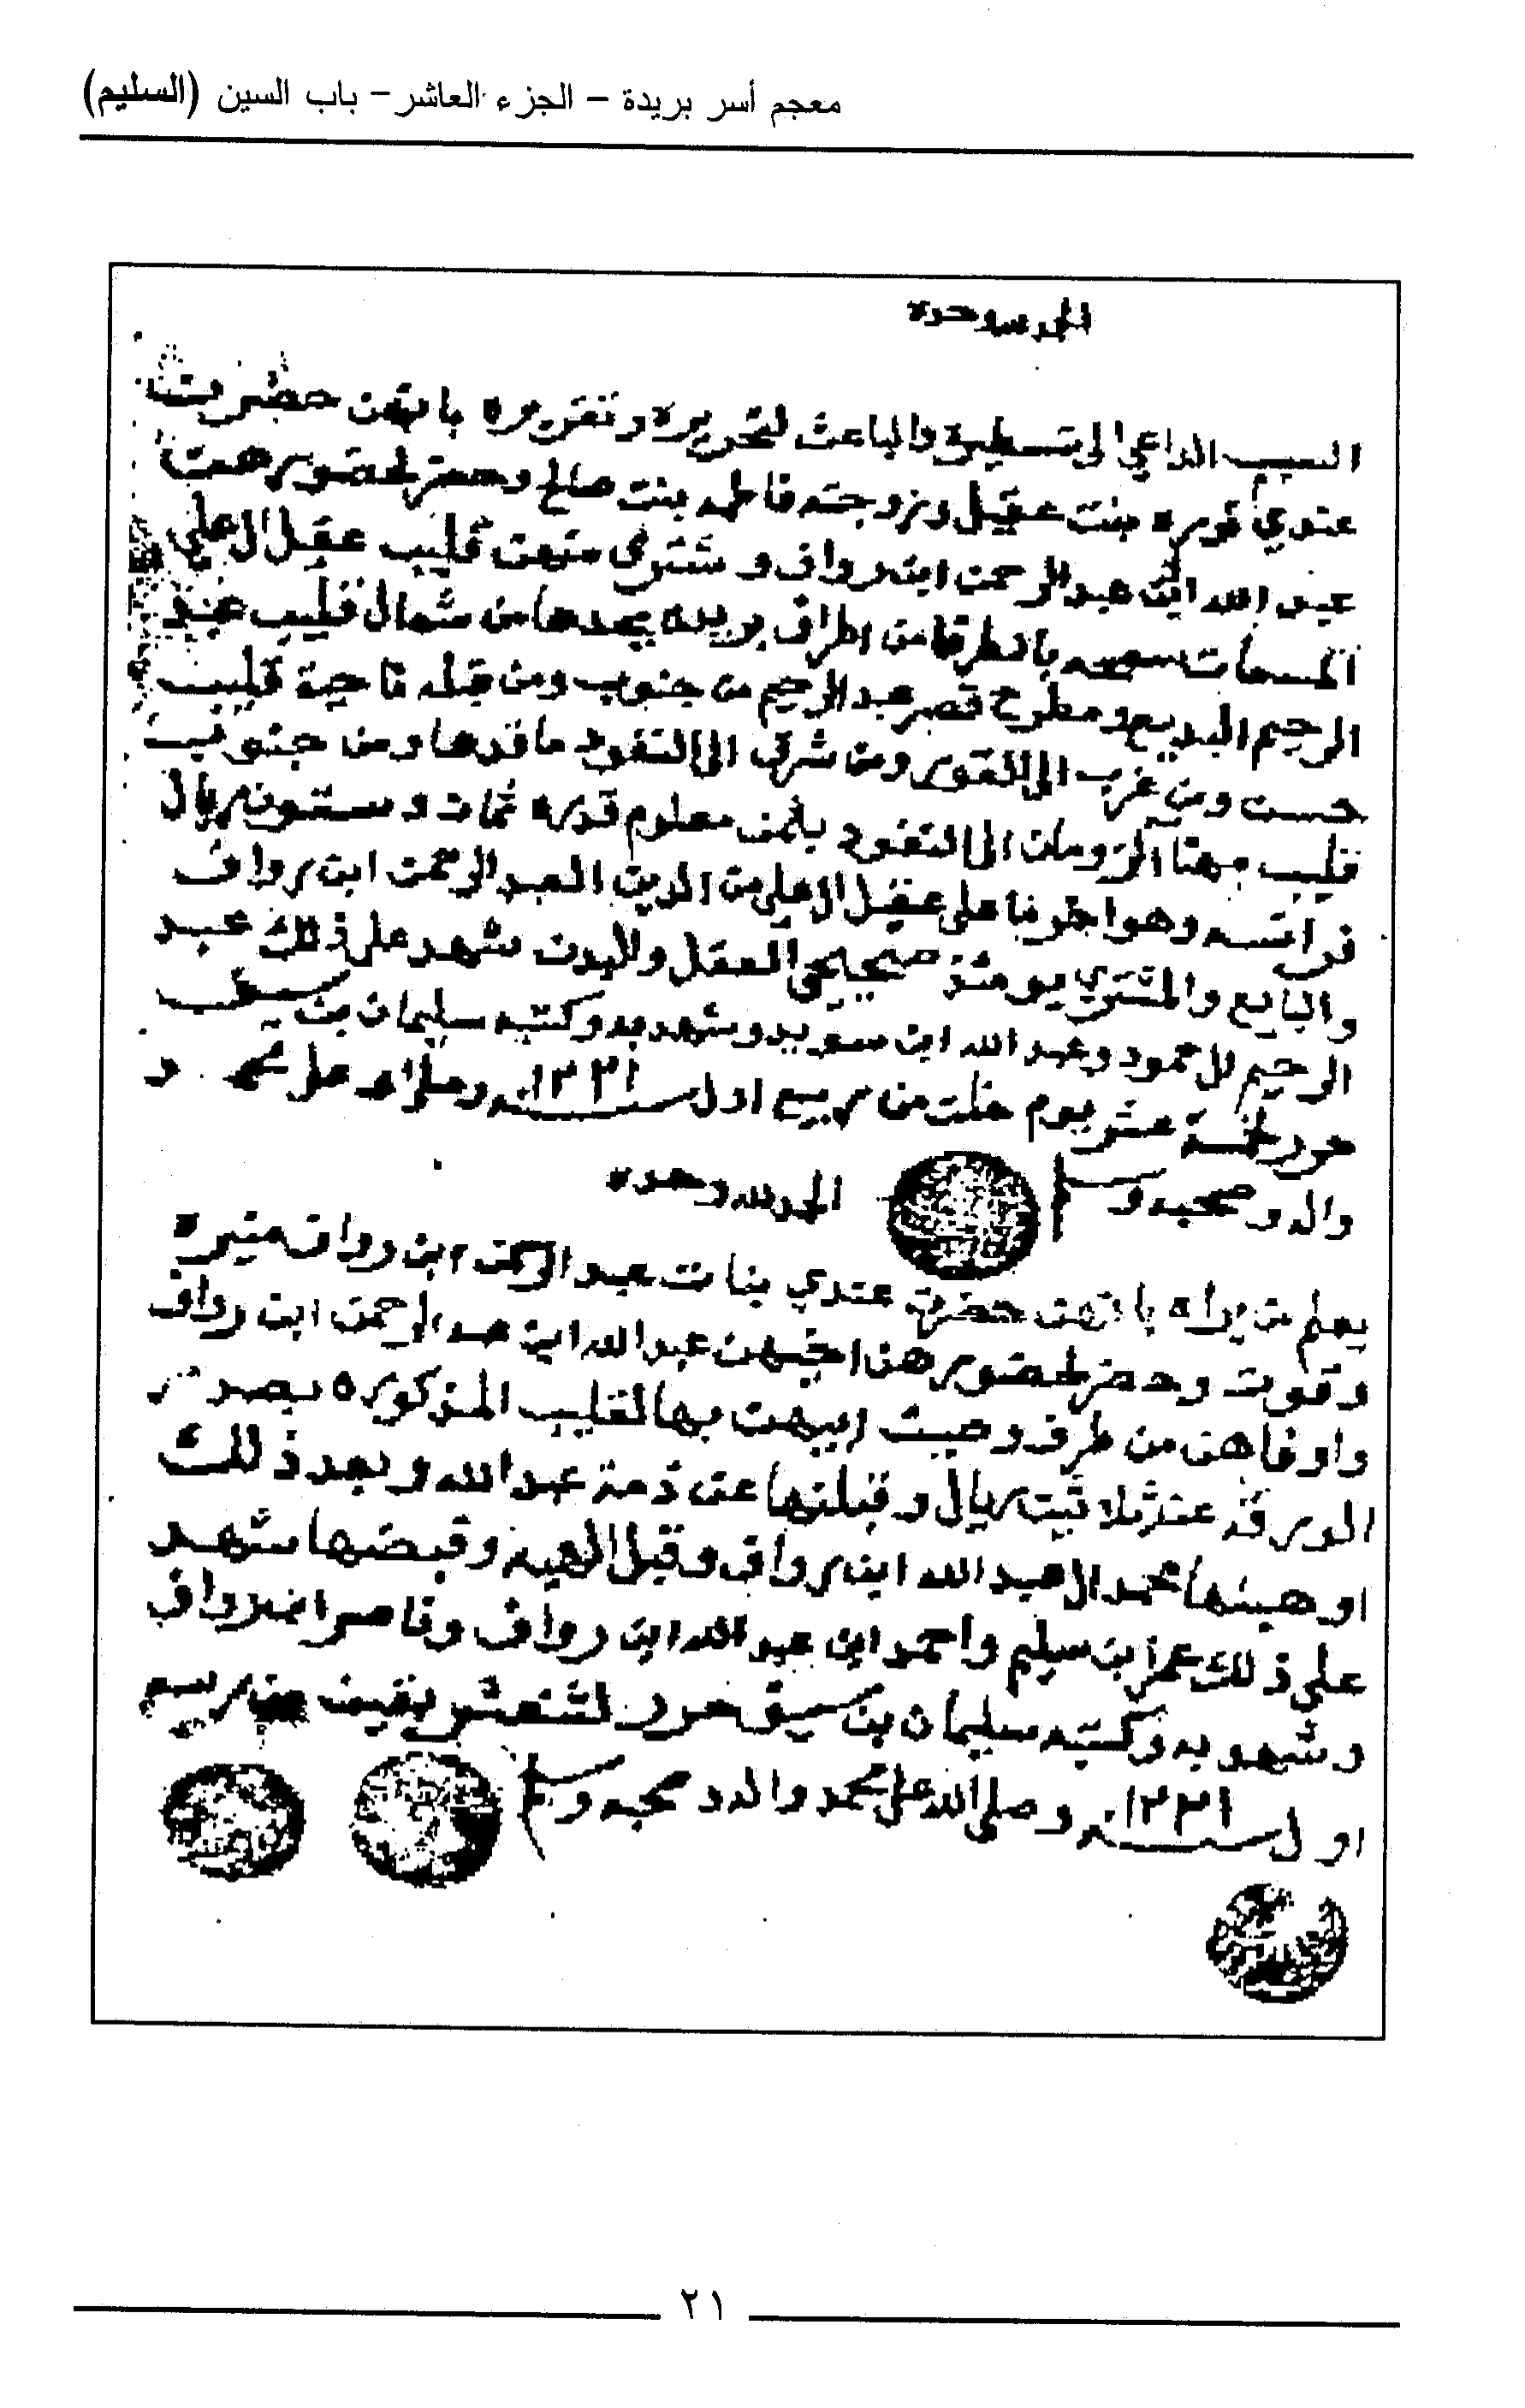 معجم أسر بريدة – الجزء العاشر – باب السين (السليم)
الحمد لله وحده
السبب الداعي الى تسطيره والباعث لتحريره وتقريره بانهن حضرت
عندي نوره بنت عقيل وزوجته فاطمه بنت صالح وحضر لحضورهن
عبد الله ابن عبد الرحمن ابن رواف و شترى منهن قليب عقيل ال علي
المسمات بالطرقا من اطراف بريده يحدها من شمال قليب عبد
الرحيم البديع ومطوح قصر عبد الرحيم من جنوب ومن قبله ناحية قليب
حسن ومن غرب الى القور ومن شرق الى النفود ما قدها ومن جنوب
قليب مهنا الزومان الى النفود بثمن معلوم قدره ثمان وستون ريال
فرانسه وهواخر ما على عقيل ال علي من الدين العبد الرحمن ابن رواف
والبايع والمشتري يومئذ صحيحي العقل والبدن شهد على ذلك عبد
الرحيم ال حمود وعبد الله ابن سويد وشهد به وكتبه سليمان بن سيف
حرر لخمسة عشر يوم خلت من ربيع اول سنه ١٣٣١ وصلى الله على محمد و
واله وصحبه وسلم
الحمد لله وحده
يعلم من يراه بانهن حضرن عندي بنات عبد الرحمن ابن رواف منيره
وقوت وحضر لحضورهن اخيهن عبد الله ابن عبد الرحمن ابن رواف
واوفاهن من طرف وصيت ابيهن بها لقليب المذكوره بصدر
الورقه عند ثلاثين ريال وقبلنها عن ذمة عبد الله وبعد ذلك
اوهبنها محمد ال عبد الله ابن رواف وقبل الهبه وقبضها شهد
على ذلك عمر ابن سليم واحمد ابن عبد الله ابن رواف وناصر ابن رواف
وشهد به وكتبه سليمان بن سيف حرر لثنعشر بقين من ربيع
اول سنه ١٣٣١ وصلى الله على محمد واله وصحبه وسلم
٢١